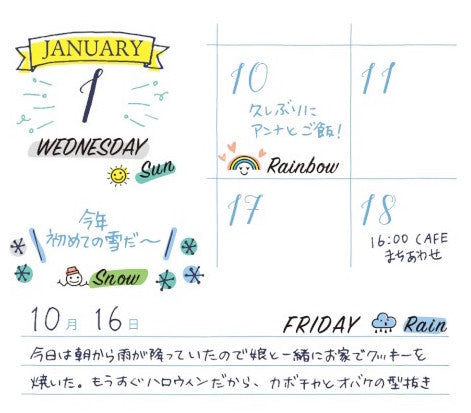 JANUARY
1
WEDNESDAY
Sun
今年
初めての雪だ〜
Snow
10
久しぶりに
アンナとご飯!
Rainbow
11
17
18
16:00 CAFE
まちあわせ
10月16日 FRIDAY Rain
今日は朝から雨が降っていたので娘と一緒にお家でクッキーを
焼いた。もうすぐハロウィンだから、カボチャとオバケの型抜き